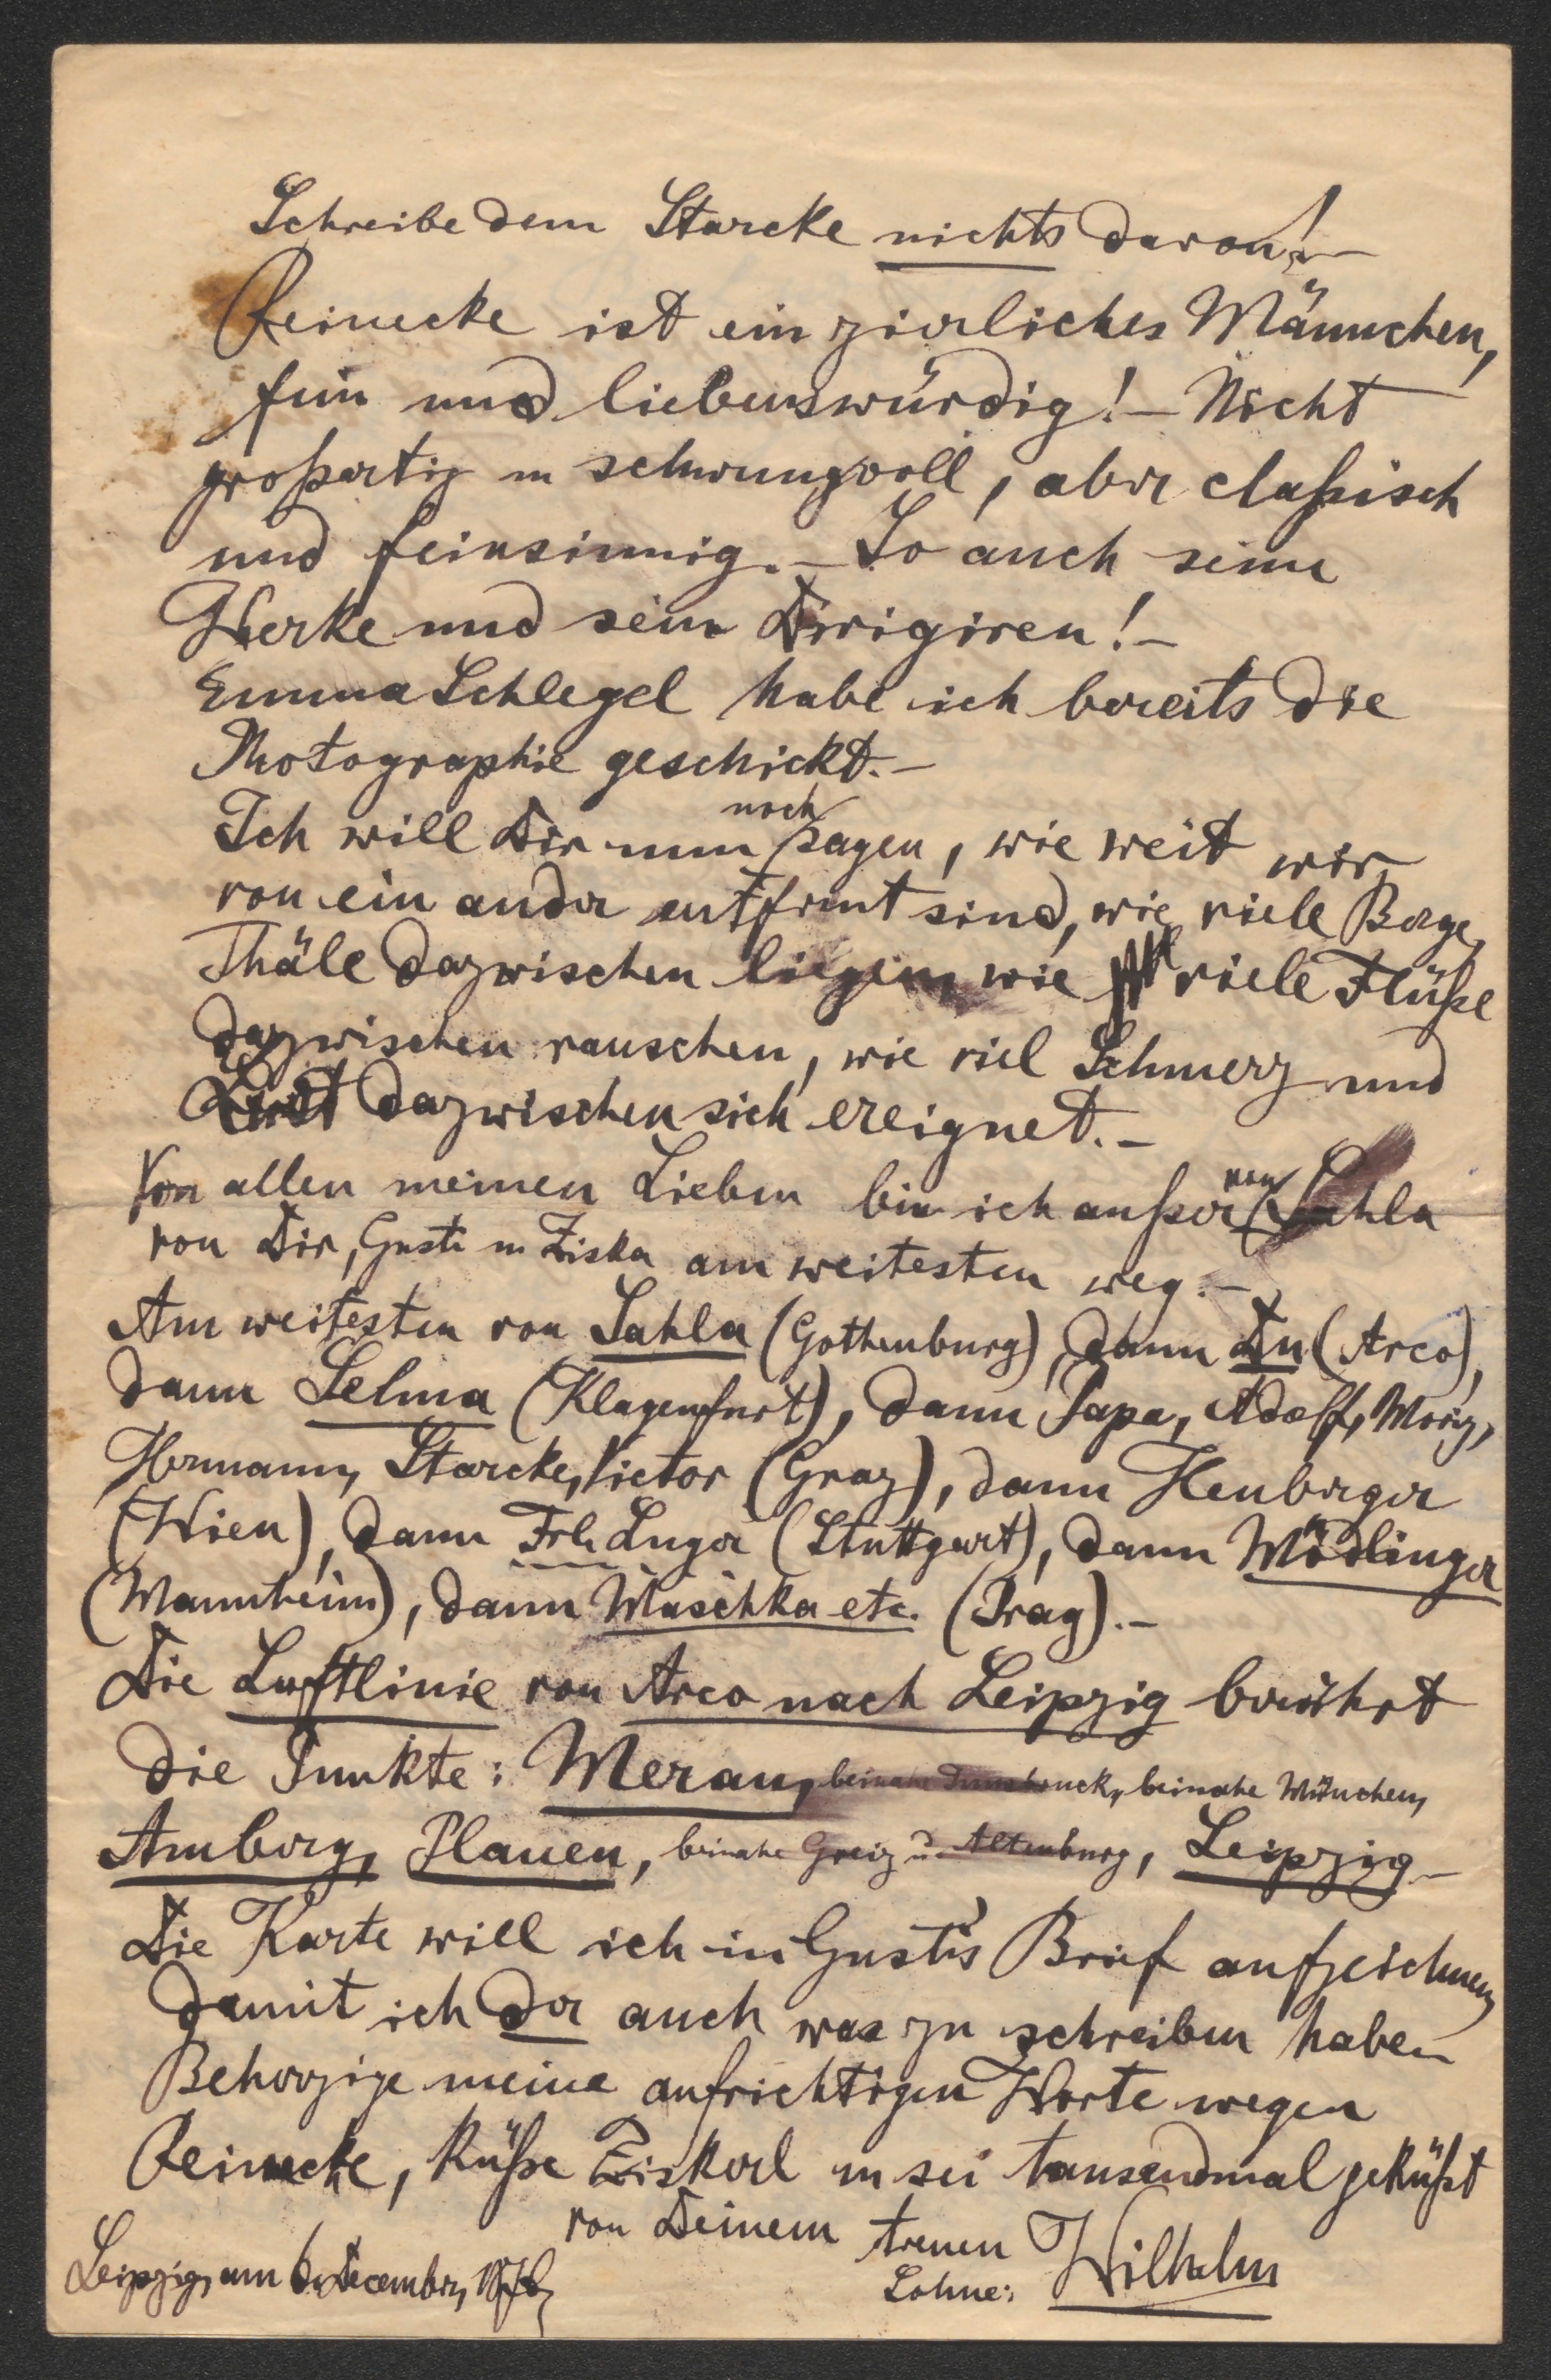 Schreibe dem Starcke nichts davon! –
Reinecke ist ein zierliches Männchen,
fein und liebenswürdig! – Nicht
großartig u schwungvoll, aber claßisch
und feinsinnig. – So auch seine
Werke und sein Dirigiren! –
Emma Schlegel habe ich bereits die
Photographie geschickt. –
Ich will Dir nun noch sagen, wie weit wir
von ein ander entfernt sind, wie viele Berge,
Thäle dazwischen liegen, wie viele Flüße
dazwischen rauschen, wie viel Schmerz und
Lust dazwischen sich ereignet. –
Von allen meinen Lieben bin ich außer von Sahla
von Dir, Gusti u Ziska am weitesten weg. –
Am weitesten von Sahla (Gothenburg), dann Du (Arco),
dann Selma (Klagenfurt), dann Papa, Adolf, Moriz,
Hermann, Starcke, Victor (Graz), dann Heuberger
(Wien), dann Frl. Luger (Stuttgart), dann Mödlinger
(Mannheim), dann Maschka etc. (Prag). –
Die Luftlinie von Arco nach Leipzig berührt
die Punkte: Meran, beinahe Innsbruck, beinahe München,
Amberg, Plauen, beinahe Greiz u. Altenburg, Leipzig –
Die Karte will ich in Gusti's Brief aufzeichnen,
damit ich der auch was zu schreiben habe –
Beherzige meine aufrichtigen Worte wegen
Reinecke, küße Ziskerl u sei tausendmal geküßt
von Deinem treuen
Sohne: Wilhelm
Leipzig, am 6. December,